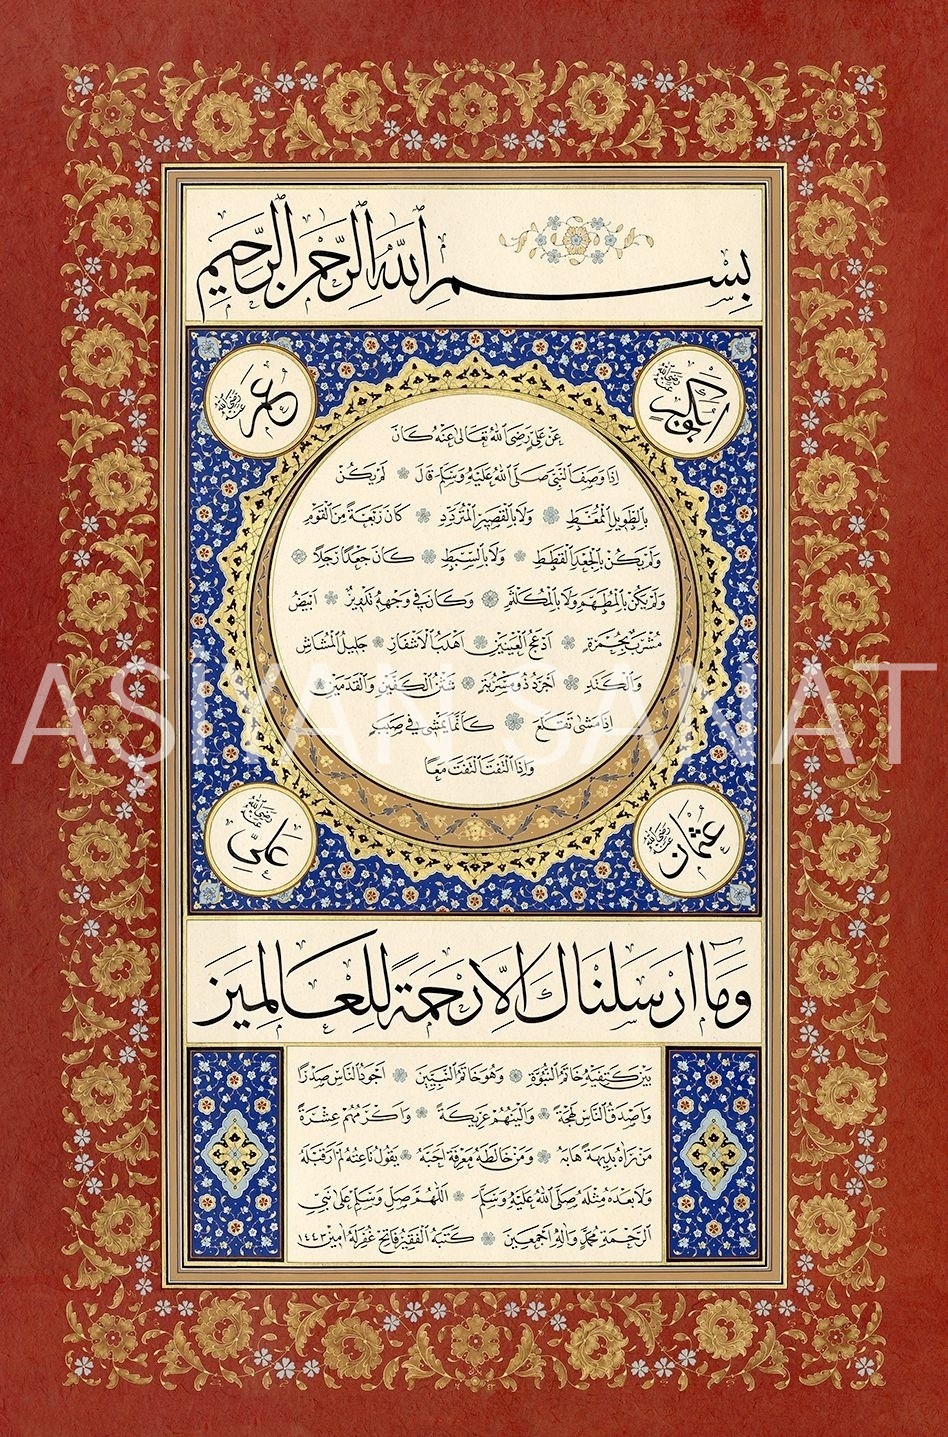 بِسْمِ اللّٰهِ الرَّحْمٰنِ الرَّحِيمِ
ابوبكر رضى الله عنه
عمر رضى الله عنه
عَنْ عَلِيٍّ رَضِيَ اللّٰهُ تَعَالٰى عَنْهُ كَانَ
اِذَا وَصَفَ النَّبِيَّ صَلَّى اللّٰهُ عَلَيْهِ وَسَلَّمَ قَالَ لَمْ يَكُنْ
بِالطَّوِيلِ الْمُمَّغِطِ وَلَا بِالْقَصِيرِ الْمُتَرَدِّدِ كَانَ رَبْعَةً مِنَ الْقَوْمِ
وَلَمْ يَكُنْ بِالْجَعْدِ الْقَطَطِ وَلَا بِالسَّبِطِ كَانَ جَعْدًا رَجِلًا
وَلَمْ يَكُنْ بِالْمُطَهَّمِ وَلَا بِالْمُكَلْثَمِ وَكَانَ فِي وَجْهِهِ تَدْوِيرٌ اَبْيَضُ
مُشْرَبٌ بِحُمْرَةٍ اَدْعَجُ الْعَيْنَيْنِ اَهْدَبُ الْاَشْفَارِ جَلِيلُ الْمُشَاشِ
وَالْكَتَدِ اَجْرَدُ ذُو مَسْرُبَةٍ شَثْنُ الْكَفَّيْنِ وَالْقَدَمَيْنِ
اِذَا مَشٰى تَقَلَّعَ كَاَنَّمَا يَمْشِي فِي صَبَبٍ
وَاِذَا الْتَفَتَ الْتَفَتَ مَعًا
عثمان رضى الله عنه
على رضى الله عنه
وَمَا اَرْسَلْنَاكَ اِلَّا رَحْمَةً لِلْعَالَمِينَ
بَيْنَ كَتِفَيْهِ خَاتَمُ النُّبُوَّةِ وَهُوَ خَاتَمُ النَّبِيِّينَ اَجْوَدُ النَّاسِ صَدْرًا
وَاَصْدَقُ النَّاسِ لَهْجَةً وَاَلْيَنُهُمْ عَرِيكَةً وَاَكْرَمُهُمْ عِشْرَةً
مَنْ رَاٰهُ بَدِيهَةً هَابَهُ وَمَنْ خَالَطَهُ مَعْرِفَةً اَحَبَّهُ يَقُولُ نَاعِتُهُ لَمْ اَرَ قَبْلَهُ
وَلَا بَعْدَهُ مِثْلَهُ صَلَّى اللّٰهُ عَلَيْهِ وَسَلَّمَ اَللّٰهُمَّ صَلِّ وَسَلِّمْ عَلٰى نَبِيِّ
الرَّحْمَةِ مُحَمَّدٍ وَاٰلِهِ اَجْمَعِينَ كَتَبَهُ الْفَقِيرُ فَاتِحْ غُفِرَ لَهُ اٰمِين ١٤٤٣
AŞİYAN SANAT